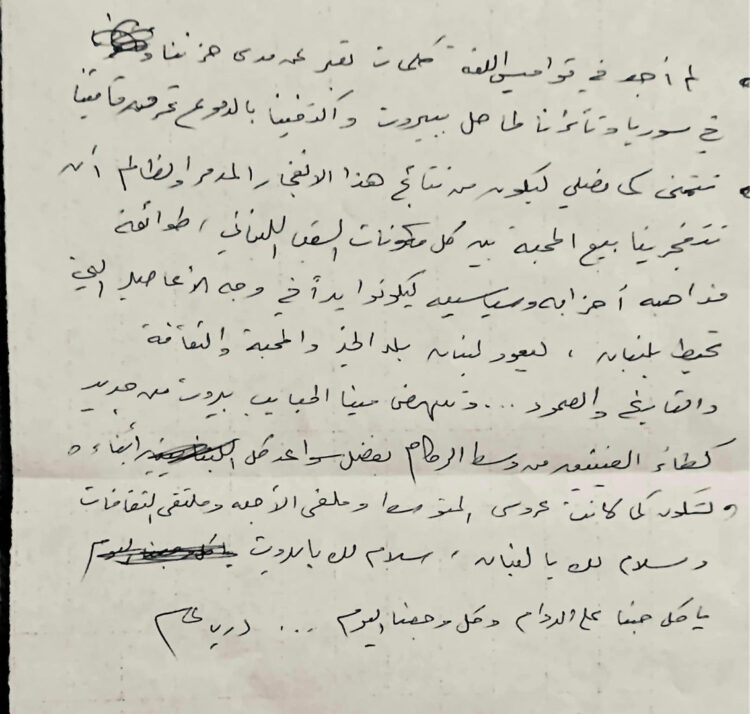 لم أجد في قواميس اللغة كلمات تعبر عن مدى حزننا
في سوريا وتأثرنا لما حل ببيروت واكتفينا بالدموع تحرق مآقينا
نتمنى كما فضلي ليكون من نتائج هذا الانفجار المدمر والظالم أن
تتفجر ينابيع المحبة بين كل مكونات الشعب اللبناني، طوائفه
مذاهبه أحزابه وسياسييه ليكونوا يداً في وجه الأعاصير التي
تحيط بلبنان، ليعود لبنان بلد الخير والمحبة والثقافة
والتاريخ والصمود... وتنهض مينا الحبايب بيروت من جديد
كطائر الفينيق من وسط الركام بفضل سواعد كل أبناءه
ولتكون كما كانت عروس المتوسط وملفى الأحبه وملتقى الثقافات
وسلام لك يا لبنان، سلام لك يا بيروت
يا كل حبنا على الدوام وكل وجعنا اليوم ...